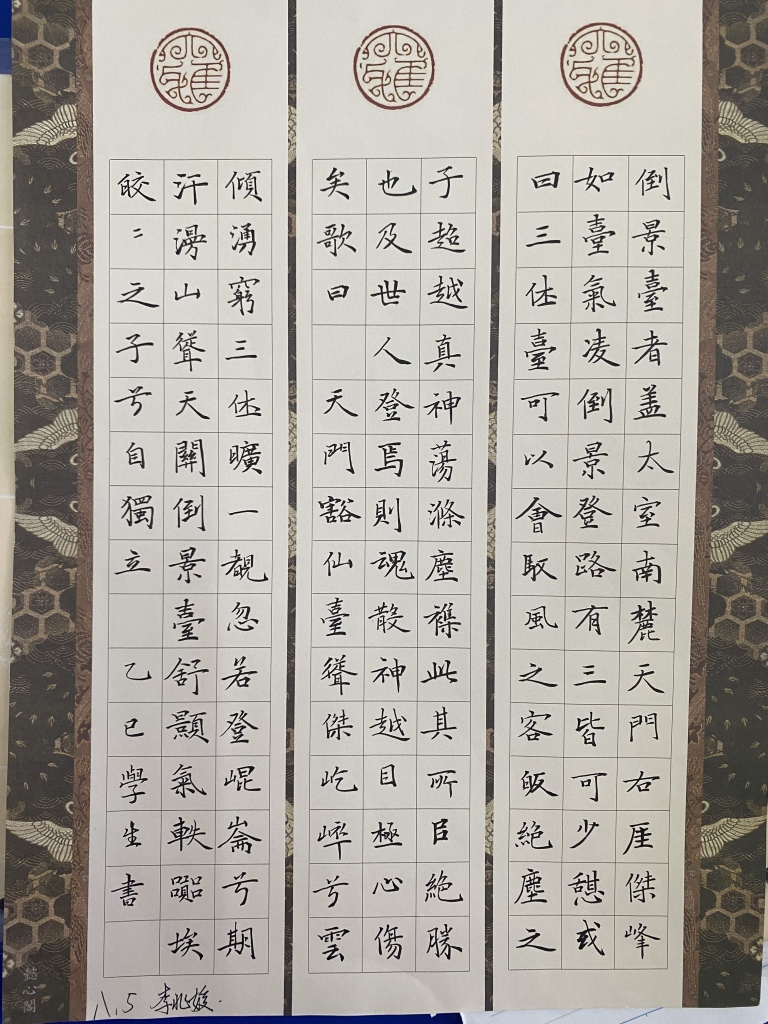 倒景臺者盖太室南麓天門右厓傑峰
如臺氣凌倒景登路有三皆可少憇或
曰三休臺可以會馭風之客皈絶塵之
子超越真神蕩滌塵襍此其所㠯絶勝
也及世人登焉則魂散神越目極心傷
矣歌曰 天門豁仙臺聳傑屹崪兮雲
傾湧窮三休曠一覩忽若登崐崙兮期
汗漫山聳天關倒景臺舒顥氣軼嚻埃
皎〻之子兮自獨立 乙巳學生書
八.5 李
懿心閣